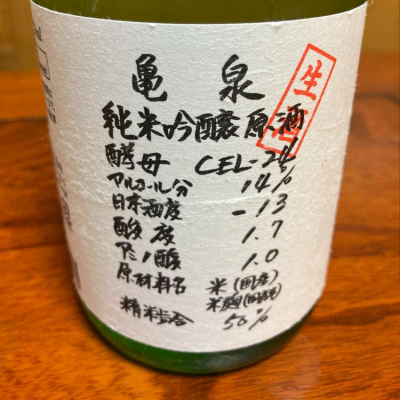 亀泉
純米吟醸原酒
生酒
酵母 CEL-24
アルコール分 14%
日本酒度 -13
酸度 1.7
アミノ酸 1.0
原材料名 米(国産)
米麹(国産米)
精米歩合 50%